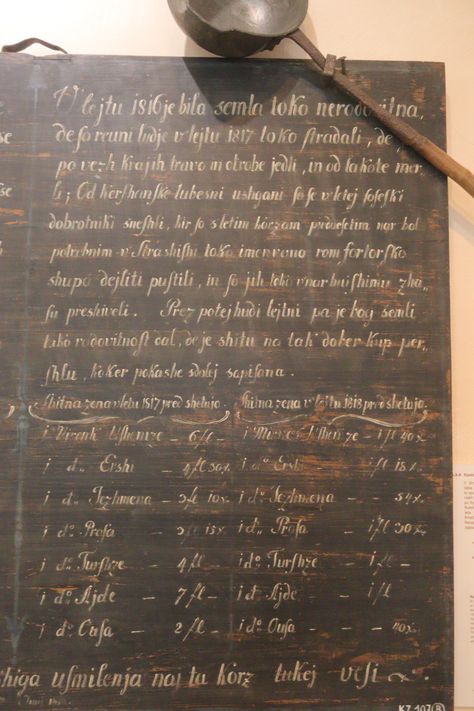 V lejtu 1816 je bila semla toko nerodovitna,
de so revni ludje v lejtu 1817 toko stradali, de,
po vezh krajih travo in otrobe jedli, in od lakote mer
li; Od kershanske lubesni ushgani so se v letej soseski
dobrotniki sneshli, kir so s letim korzam
potrebnim v Strashishi toko imenvano romfortarsko
shupo dejliti pustili, in so jih toko v narhujshimu zha„
su preshiveli. Prez potej hudi lejtni pa je bog semli
tako rodovitnost dal, de je shitu na tak dober kup per„
shlu, koker pokashe sdolej sapisana.
Shitna zena v letu 1817 pred shetujo. Shitna zena v lejtu 1818 pred shetujo.
i Mirnk Pshenize – 6 fl – i Mirnk Pshenize – i fl 40 x.
i do Ershi – 4 fl 30 x. i do Ershi – i fl 15 x.
i do Jezhmena – 3 fl 10 x. i do Jezhmena – 54 x.
i do Prosa – 3 fl 15 x. i do Prosa – i fl 30 x.
i do Turshze – 4 fl i do Turshze – i fl –
i do Ajde – 7 fl – i do Ajde – i fl
i do Ousa – 2 fl – i do Ousa – 40 x.
shiga usmilenja naj ta korz tukej visi
KZ 107 B